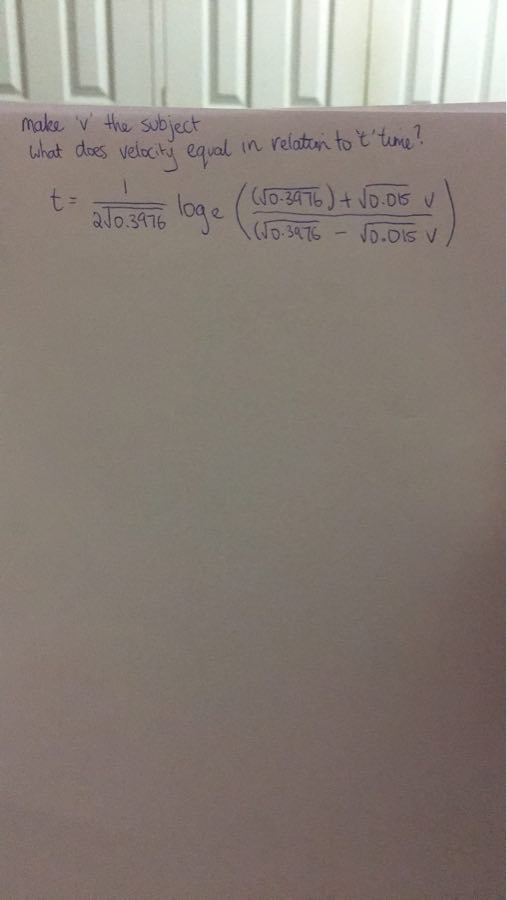 make 'v' the subject
What does velocity equal in relation to 't' time?
t = 1/(2√0.3976) loge (((√0.3976) + √0.015 v)/((√0.3976 - √0.015 v))